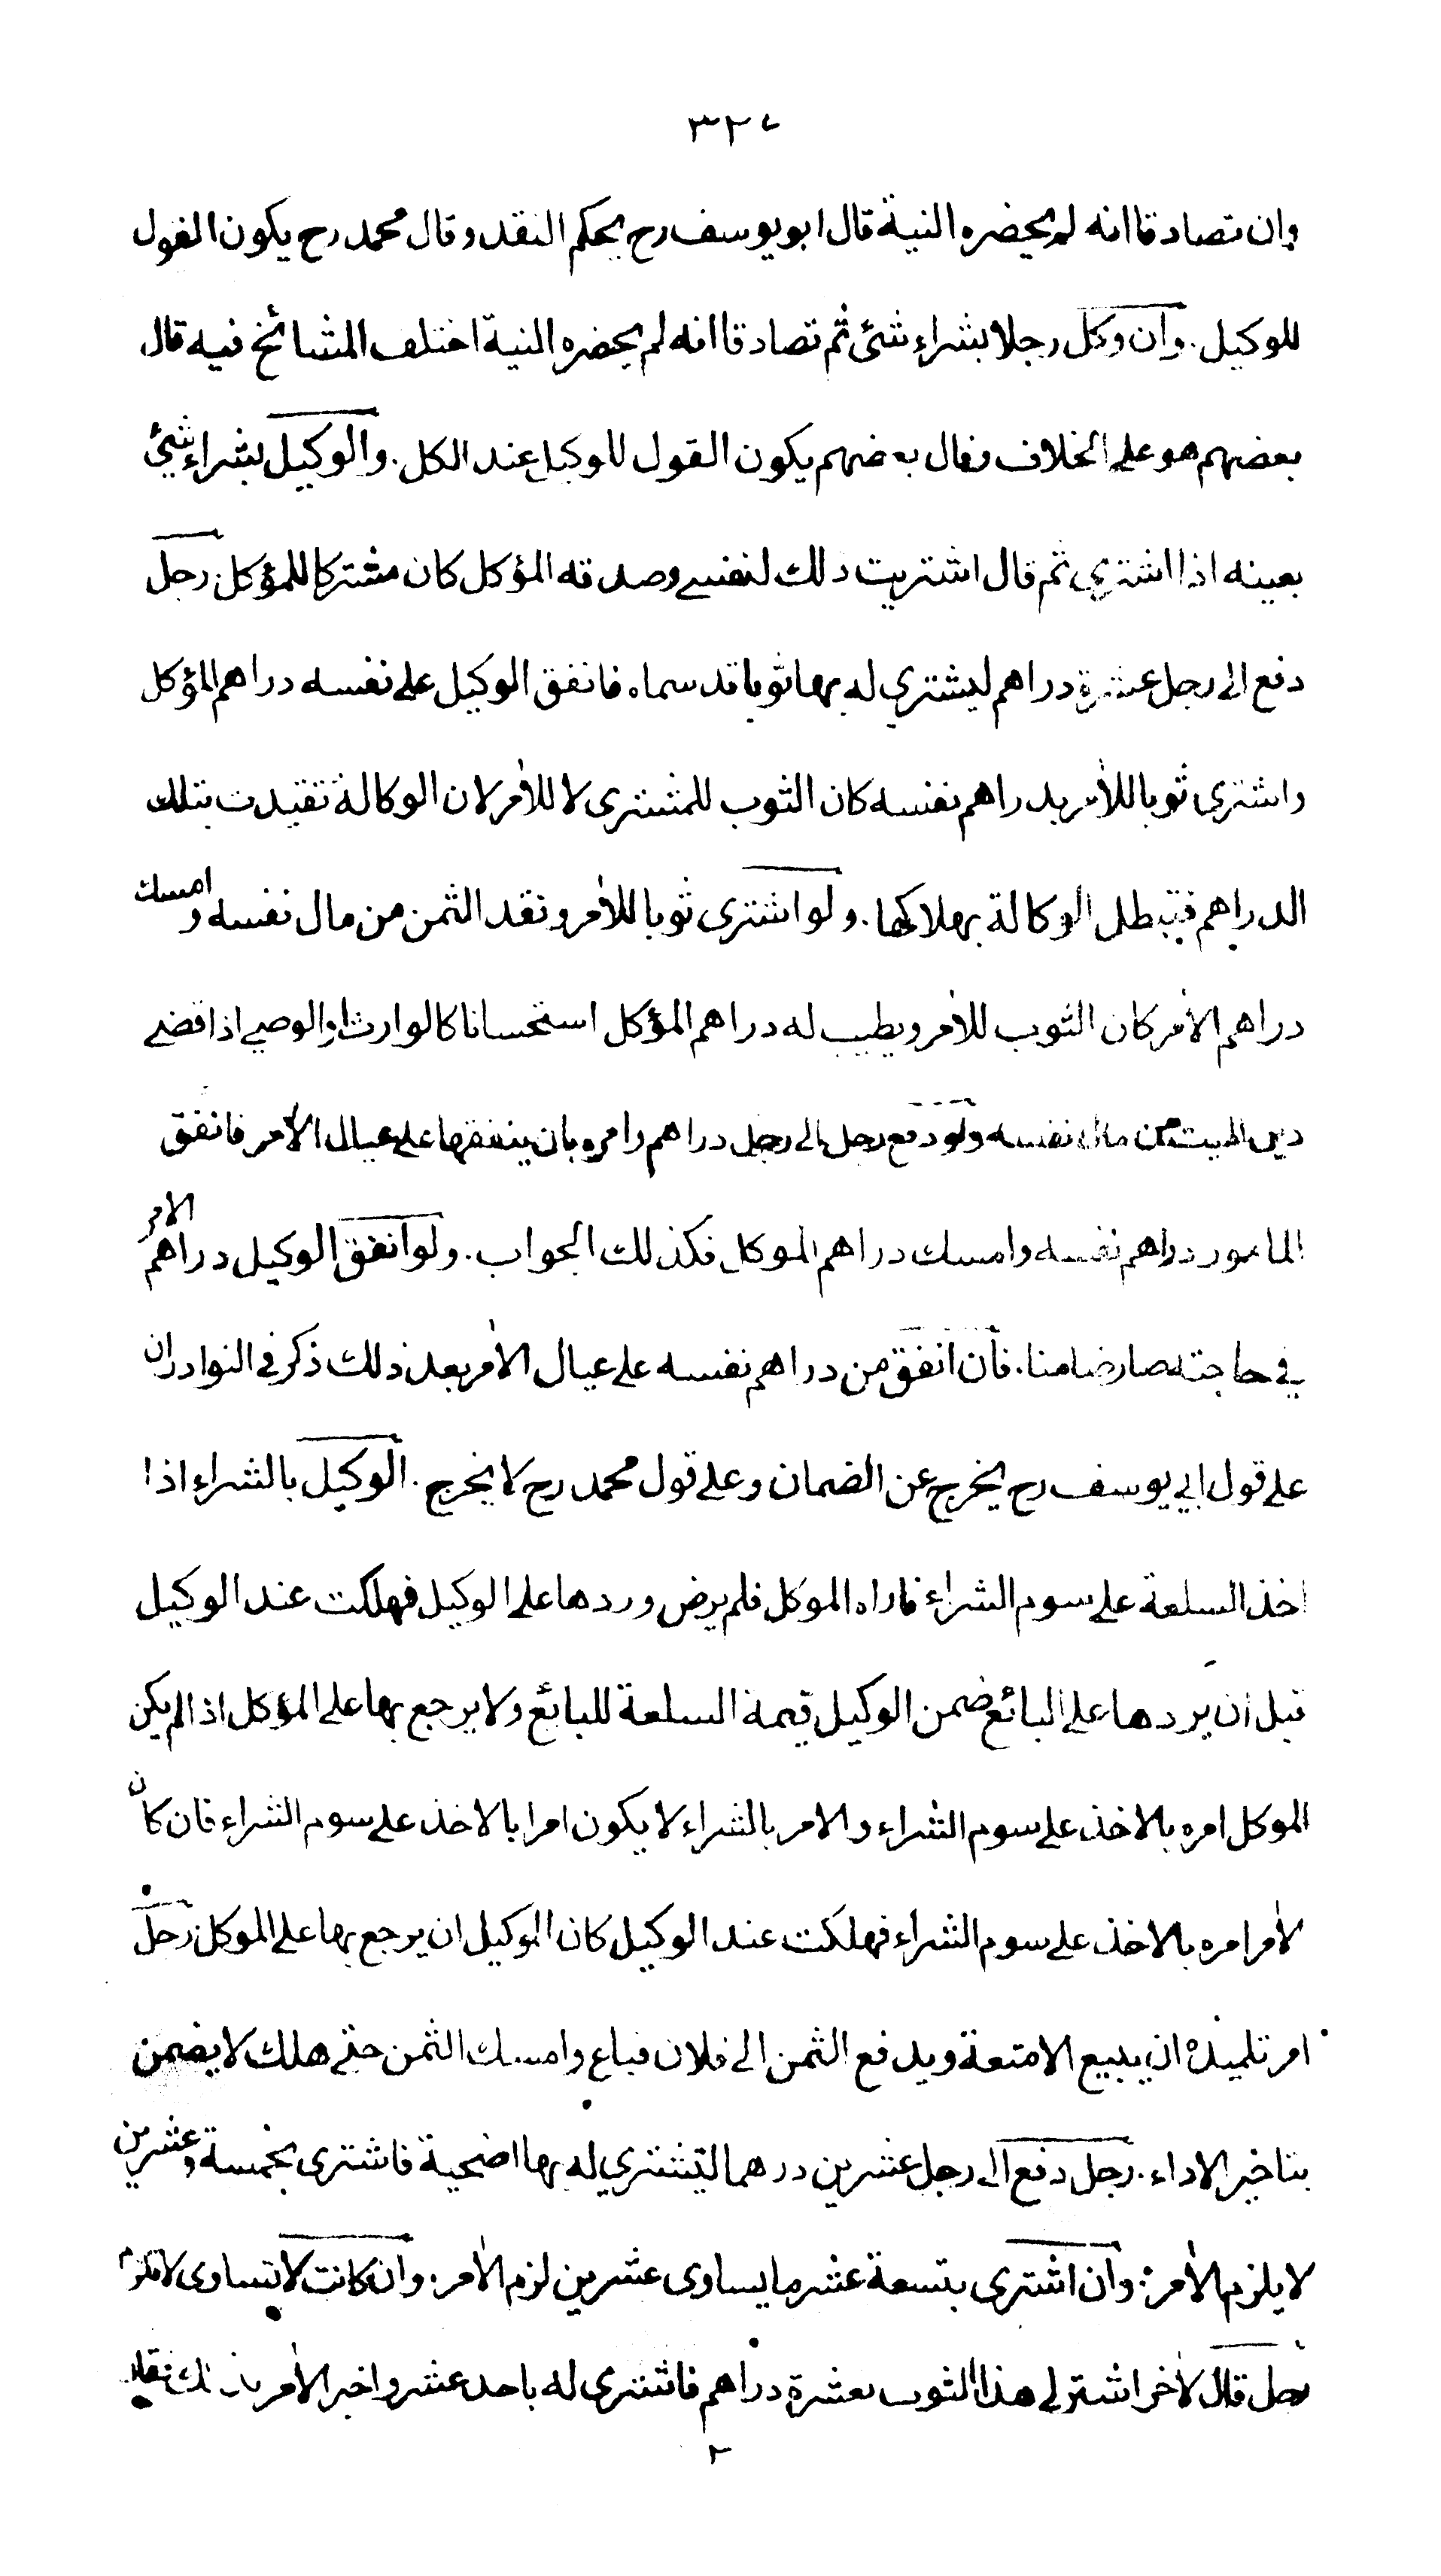 ٣٢٧
وان تصادقا انه لم يحضره النية قال ابو يوسف رح يحكم النقد وقال محمد رح يكون القول
للوكيل . وان وكل رجلا بشراء شئ ثم تصادقا انه لم يحضره النية اختلف المشائخ فيه قال
بعضهم هو على الخلاف وقال بعضهم يكون القول للوكيل عند الكل . والوكيل بشراء شئ
بعينه اذا اشترى ثم قال اشتريت ذلك لنفسى وصدقه المؤكل كان مشتركا للمؤكل . رجل
دفع الى رجل عشرة دراهم ليشتري له بها ثوبا قد سماه فانفق الوكيل على نفسه دراهم المؤكل
واشترى ثوبا للآمر بدراهم نفسه كان الثوب للمشترى لا للآمر لان الوكالة تقيدت بتلك
الدراهم فتبطل الوكالة بهلاكها . ولو اشترى ثوبا للآمر ونقد الثمن من مال نفسه وامسك
دراهم الآمر كان الثوب للآمر ويطيب له دراهم المؤكل استحسانا كالوارث او الوصي اذا قضى
دين الميت من مال نفسه ولو دفع رجل الى رجل دراهم وامره بان ينفقها على عيال الآمر فانفق
المامور دراهم نفسه وامسك دراهم الموكل فكذلك الجواب . ولو انفق الوكيل دراهم الآمر
في حاجته صار ضامنا . فان انفق من دراهم نفسه على عيال الآمر بعد ذلك ذكر في النوادر ان
على قول ابي يوسف رح يخرج عن الضمان وعلى قول محمد رح لا يخرج . الوكيل بالشراء اذا
اخذ السلعة على سوم الشراء فاراه الموكل فلم يرض وردها على الوكيل فهلكت عند الوكيل
قبل ان يردها على البائع ضمن الوكيل قيمة السلعة للبائع ولا يرجع بها على المؤكل اذا لم يكن
الموكل امره بالاخذ على سوم الشراء والامر بالشراء لا يكون امرا بالاخذ على سوم الشراء فان كان
الآمر امره بالاخذ على سوم الشراء فهلكت عند الوكيل كان للوكيل ان يرجع بها على الموكل رجل
امر تلميذه ان يبيع الامتعة ويدفع الثمن الى فلان فباع وامسك الثمن حتى هلك لا يضمن
بتاخير الاداء . رجل دفع الى رجل عشرين درهما ليشتري له بها اضحية فاشترى بخمسة وعشرين
لا يلزم الآمر . وان اشترى بتسعة عشر ما يساوى عشرين لزم الآمر . وان كانت لا تساوى لا تلزم
رجل قال لآخر اشتر لى هذا الثوب بعشرة دراهم فاشترى له باحد عشر واخبر الآمر بذلك فقال
٢